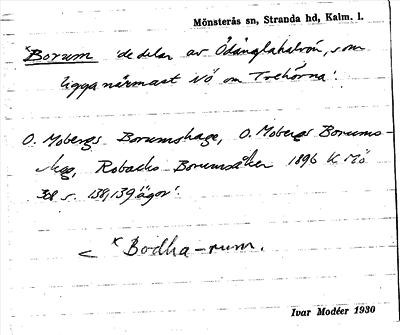 Mönsterås sn, Stranda hd, Kalm. l.
×Borum 'de delar av Ödänglahalvön, som
ligga närmast NÖ om Trehörna'.
O. Mobergs Borumshage, O. Mobergs Borums-
, Robacks Borumsåker 1896 K Mö
308 s. 138, 139 'ägor'.
< ×Bodha-rum.
Ivar Modéer 1930